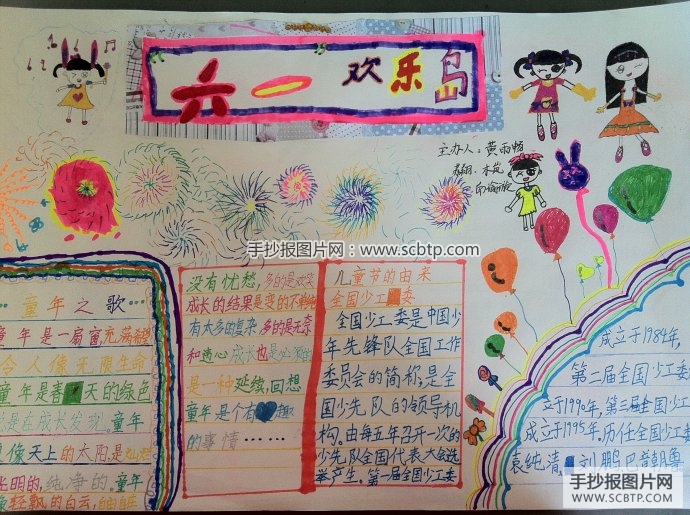 六一欢乐岛
主办人：黄雨畅
手抄报图片网：www.scbtp.com
童年之歌
童年是一扇窗,充满
合人像无限生命
童年是春天的绿色
是在成长发现。童年
像天上的太阳是
长明的,纯净的。童年
像轻飘的白云,
没有忧愁,多的是欢笑
成长的结果是变的不
有太多的复杂,多的是无奈
和违心成长也是必
是一种延续,回想
童年是个有趣
的事情……
儿童节的由来
全国少工委
全国少工委是中国少
年先锋队全国工作
委员会的简称,是全
国少先队的领导机
构。由每五年召开一次的
少先队全国代表大会选
举产生。第一届全国少工委
成立于1984年,
第二届全国少工委
立于1990年,第三届全国少工
成立于1995年.历任全国少工委
袁纯清、刘鹏、巴音朝鲁
手抄报图片网
WWW.SCBTP.COM